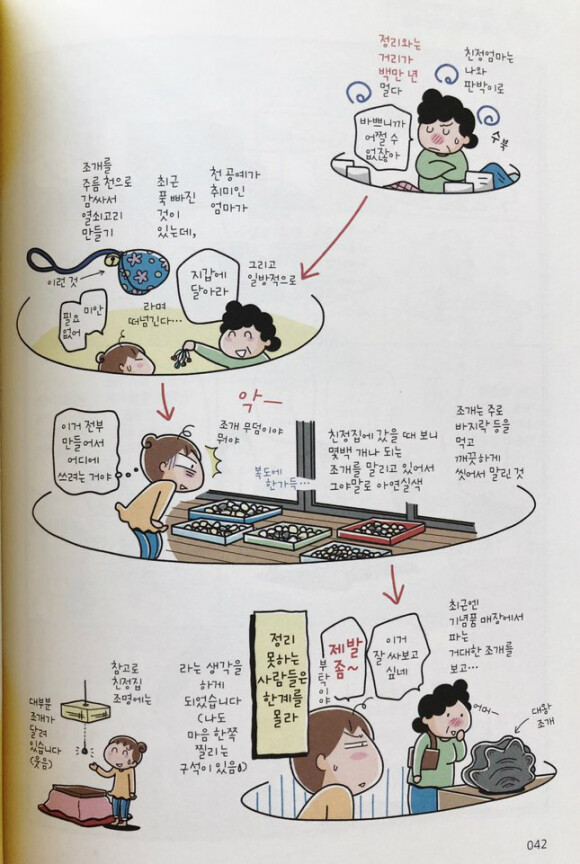 친정엄마는
나와
판박이로
정리와는
거리가
백만 년
멀다
바쁘니까
어쩔 수
없잖아
수북
천 공예가
취미인
엄마가
최근
푹 빠진
것이
있는데,
조개를
주름 천으로
감싸서
열쇠고리
만들기
이런 것
그리고
일방적으로
지갑에
달아라
라며
떠넘긴다…
미안
필요
없어
악—
조개는 주로
바지락 등을
먹고
깨끗하게
씻어서 말린 것
친정집에 갔을 때 보니
몇백 개나 되는
조개를 말리고 있어서
그야말로 아연실색
조개 무덤이야
뭐야
복도에
한가득…
이거 전부
만들어서
어디에
쓰려는 거야
최근엔
기념품 매장에서
파는
거대한 조개를
보고…
대왕
조개
어머—
이거
잘 싸보고
싶네
제발
좀~
부탁이야
정리
못하는
사람들은
한계를
몰라
라는 생각을
하게
되었습니다
(나도
마음 한쪽
찔리는
구석이 있음)
참고로
친정집
조명에는
대부분
조개가
달려
있습니다
(웃음)
042